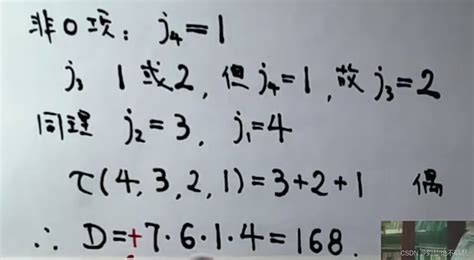 非0项: j₄=1
j₃ 1或2, 但j₄=1, 故j₃=2
同理 j₂=3, j₁=4
τ(4,3,2,1)=3+2+1 偶
∴ D=+7·6·1·4=168.